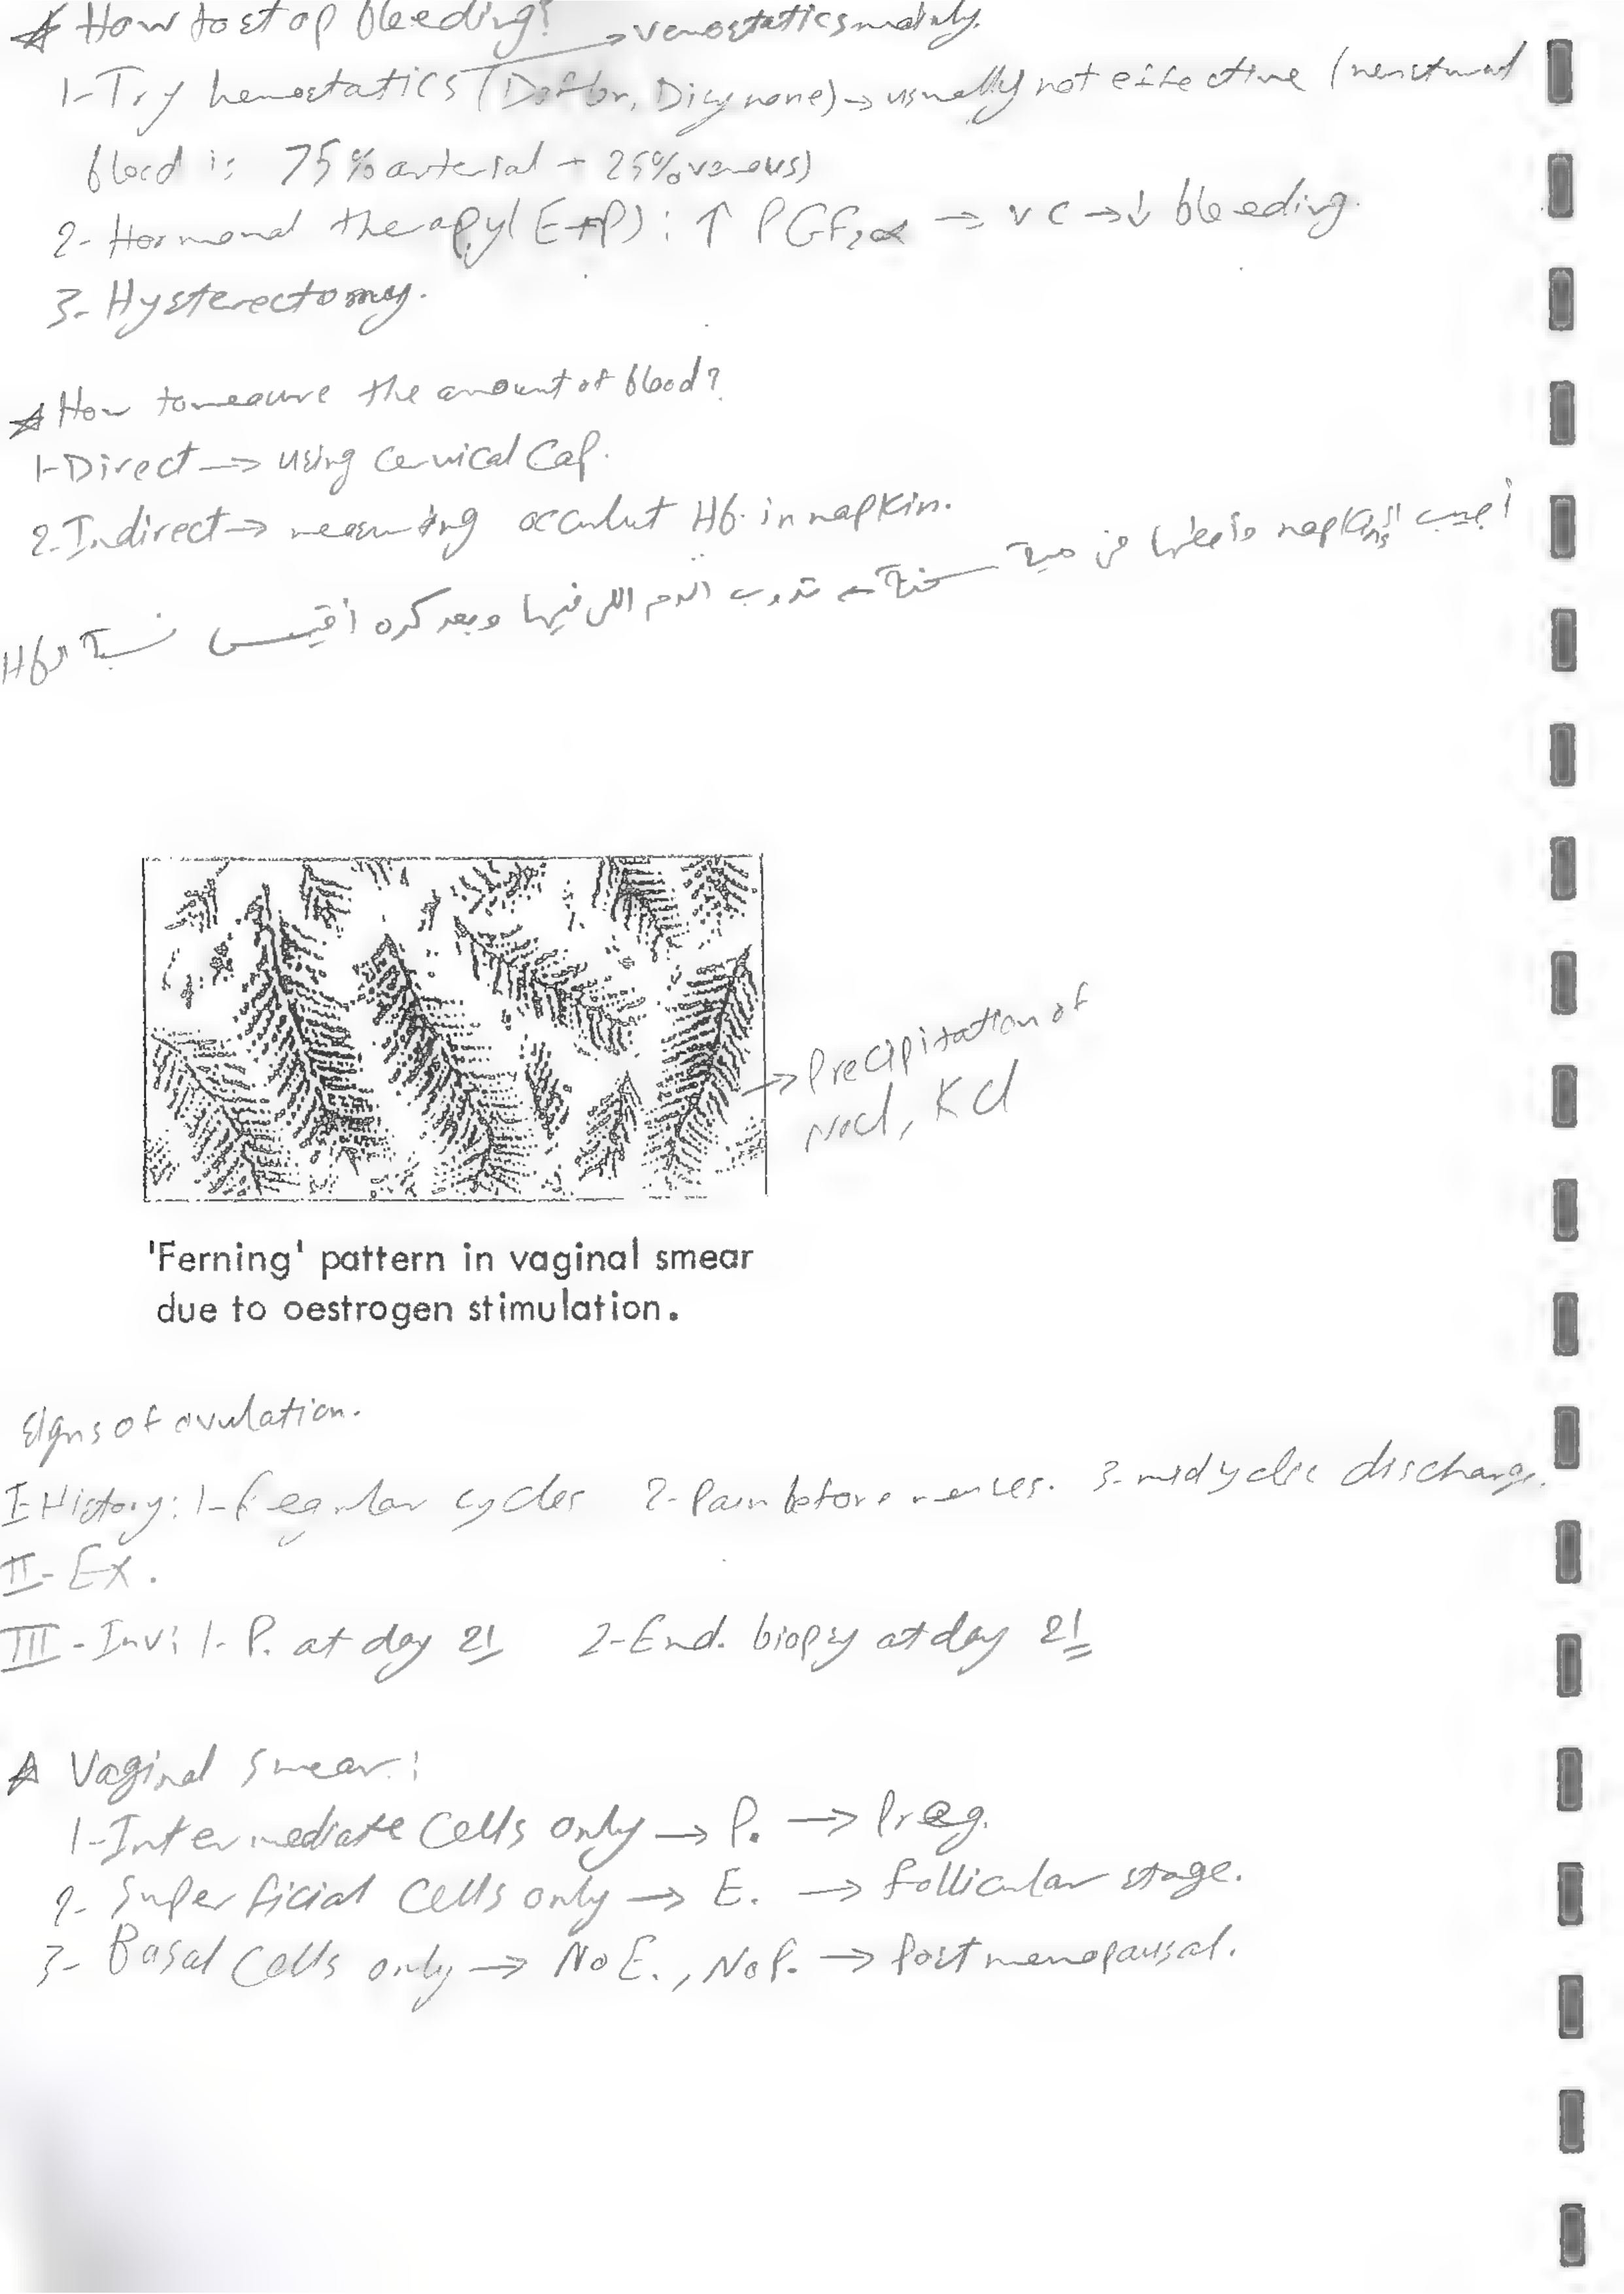 ☆ How to stop bleeding?
→ venostatics mainly.
1- Try hemostatics (Daflon, Dicynone) → usually not effective (menstrual
blood is 75% arterial + 25% venous)
2- Hormonal therapy (E+P): ↑ PGF2α → VC → ↓ bleeding.
3- Hysterectomy.
☆ How to measure the amount of blood?
1- Direct → using cervical cap.
2- Indirect → measuring occult Hb. in napkin.
أجيب الـ napkins وأحطها في مية
سخنة → تدوب الدم اللي فيها وبعد كده أقيس نسبة الـ Hb
→ Precipitation of
NaCl, KCl
'Ferning' pattern in vaginal smear
due to oestrogen stimulation.
Signs of ovulation.
I- History: 1- Regular cycles 2- Pain before menses. 3- midcyclic discharge.
II- Ex.
III- Inv: 1- P. at day 21 2- End. biopsy at day 21
☆ Vaginal smear:
1- Intermediate cells only → P. → Preg.
2- Superficial cells only → E. → follicular stage.
3- Basal cells only → No E., No P. → Postmenopausal.